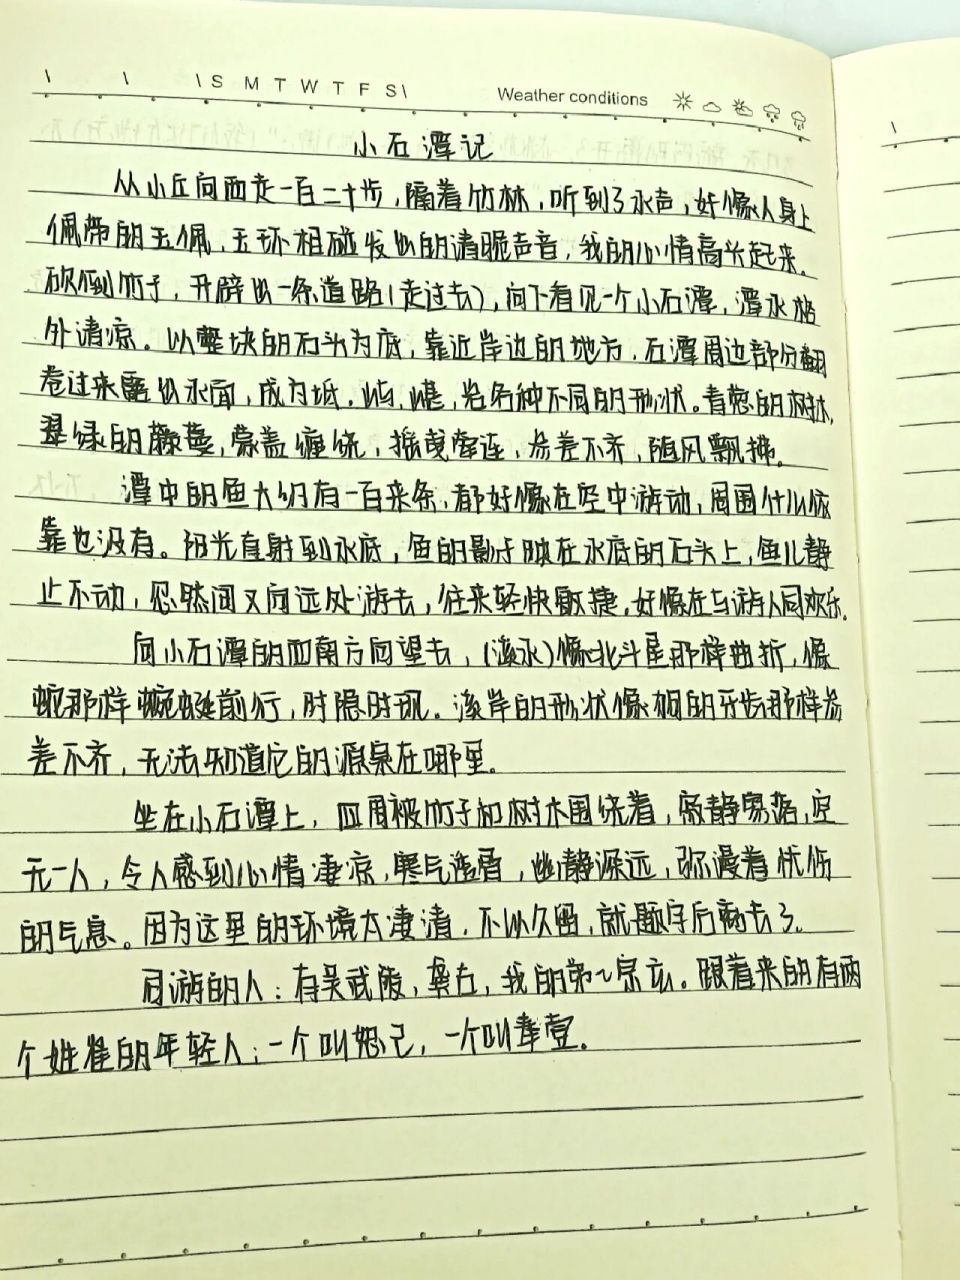 \ \ \ S M T W T F S \ Weather conditions
小石潭记
从小丘向西走一百二十步，隔着竹林，听到了水声，好像人身上
佩带的玉佩，玉环相碰发出的清脆声音，我的心情高兴起来。
砍倒竹子，开辟出一条道路(走过去)，向下看见一个小石潭，潭水格
外清凉。以整块的石头为底，靠近岸边的地方，石潭周边部分翻
卷过来露出水面，成为坻，屿，嵁，岩各种不同的形状。青葱的树林，
翠绿的藤蔓，蒙盖缠绕，摇曳牵连，参差不齐，随风飘拂。
潭中的鱼大约有一百来条，都好像在空中游动，周围什么依
靠也没有。阳光直射到水底，鱼的影子映在水底的石头上，鱼儿静
止不动，忽然间又向远处游去，往来轻快敏捷，好像在与游人同欢乐。
向小石潭的西南方向望去，(溪水)像北斗星那样曲折，像
蛇那样蜿蜒前行，时隐时现。溪岸的形状像狗的牙齿那样参
差不齐，无法知道它的源泉在哪里。
坐在小石潭上，四周被竹子和树木围绕着，寂静寥落，空
无一人，令人感到心情凄凉，寒气透骨，幽静深远，弥漫着忧伤
的气息。因为这里的环境太凄清，不以久留，就题字后离去了。
同游的人：有吴武陵，龚右，我的弟弟宗玄。跟着来的有两
个姓崔的年轻人；一个叫恕己，一个叫奉壹。